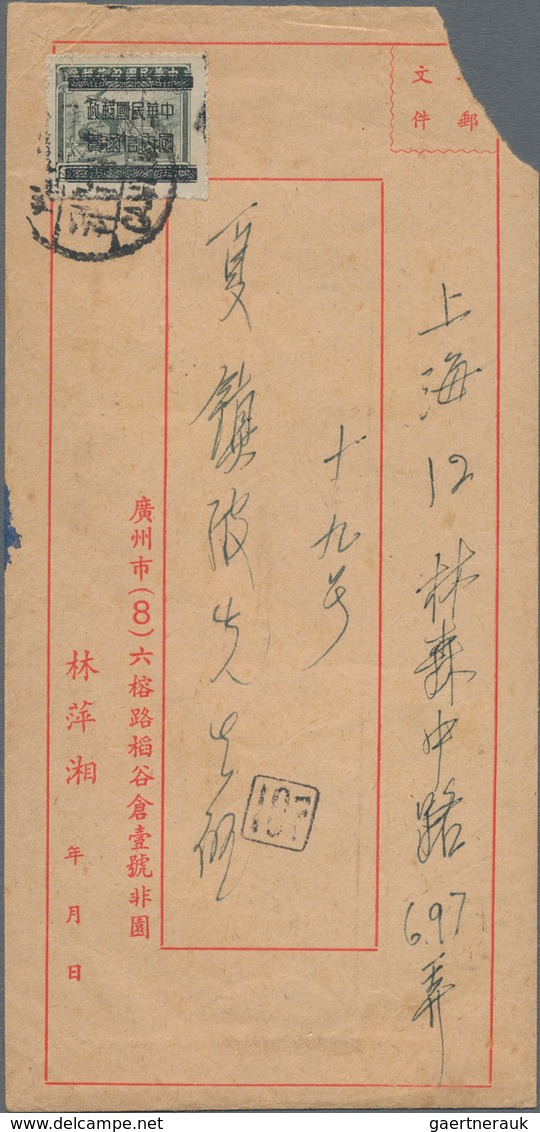 文件
郵
上海12林森中路697弄
十九号
夏鎮波先生啟
廣州市(8)六榕路稻谷倉壹號非園
林萍湘 年月日
中華民國郵政
國內信函費
CANTON
107
gaertnerauk